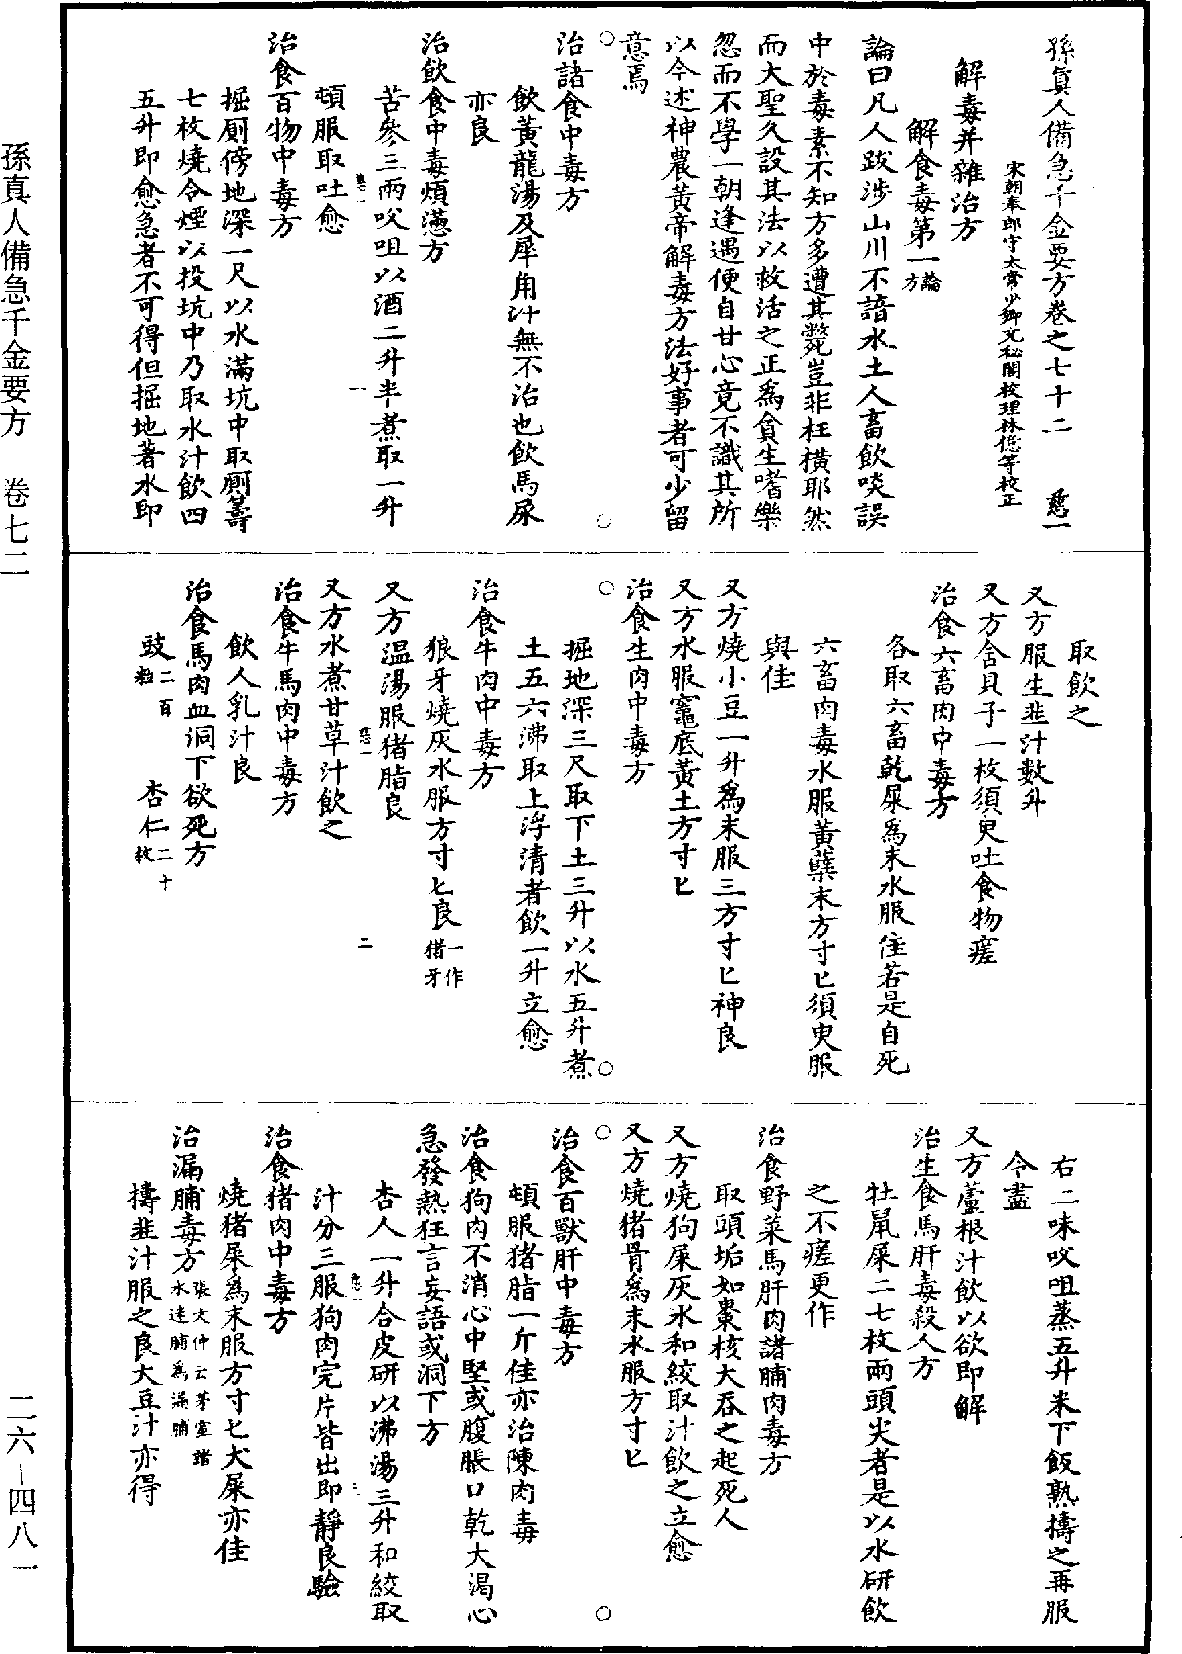 孫真人備急千金要方 卷七二
二六-四八一
孫真人備急千金要方卷之七十二 慤一
宋朝奉郎守太常少卿充秘閣校理林億等校正
解毒并雜治方
解食毒第一論方
論曰凡人跋涉山川不諳水土人畜飲啖誤
中於毒素不知方多遭其斃豈非枉橫耶然
而大聖久設其法以救活之正為貪生嗜樂
忽而不學一朝逢遇便自甘心竟不識其所
以今述神農黃帝解毒方法好事者可少留
意焉
治諸食中毒方
飲黃龍湯及犀角汁無不治也飲馬尿
亦良
治飲食中毒煩懣方
苦參三兩㕮咀以酒二升半煮取一升
頓服取吐愈
治食百物中毒方
掘廁傍地深一尺以水滿坑中取廁籌
七枚燒令煙以投坑中乃取水汁飲四
五升即愈急者不可得但掘地著水即
取飲之
又方服生韭汁數升
又方含貝子一枚須臾吐食物瘥
治食六畜肉中毒方
各取六畜乾屎為末水服佳若是自死
六畜肉毒水服黃蘗末方寸匕須臾服
與佳
又方燒小豆一升為末服三方寸匕神良
又方水服竈底黃土方寸匕
治食生肉中毒方
掘地深三尺取下土三升以水五升煮
土五六沸取上浮清者飲一升立愈
治食牛肉中毒方
狼牙燒灰水服方寸匕良一作猪牙
又方溫湯服猪脂良
又方水煮甘草汁飲之
治食牛馬肉中毒方
飲人乳汁良
治食馬肉血洞下欲死方
豉二百粒 杏仁二十枚
右二味㕮咀蒸五升米下飯熟擣之再服
令盡
又方蘆根汁飲以欲即解
治生食馬肝毒殺人方
牡鼠屎二七枚兩頭尖者是以水研飲
之不瘥更作
治食野菜馬肝肉諸脯肉毒方
取頭垢如棗核大吞之起死人
又方燒狗屎灰水和絞取汁飲之立愈
又方燒猪骨為末水服方寸匕
治食百獸肝中毒方
頓服猪脂一斤佳亦治陳肉毒
治食狗肉不消心中堅或腹脹口乾大渴心
急發熱狂言妄語或洞下方
杏人一升合皮研以沸湯三升和絞取
汁分三服狗肉完片皆出即靜良驗
治食猪肉中毒方
燒猪屎為末服方寸匕犬屎亦佳
治漏脯毒方張文仲云茅室諸水達脯為漏脯
擣韭汁服之良大豆汁亦得